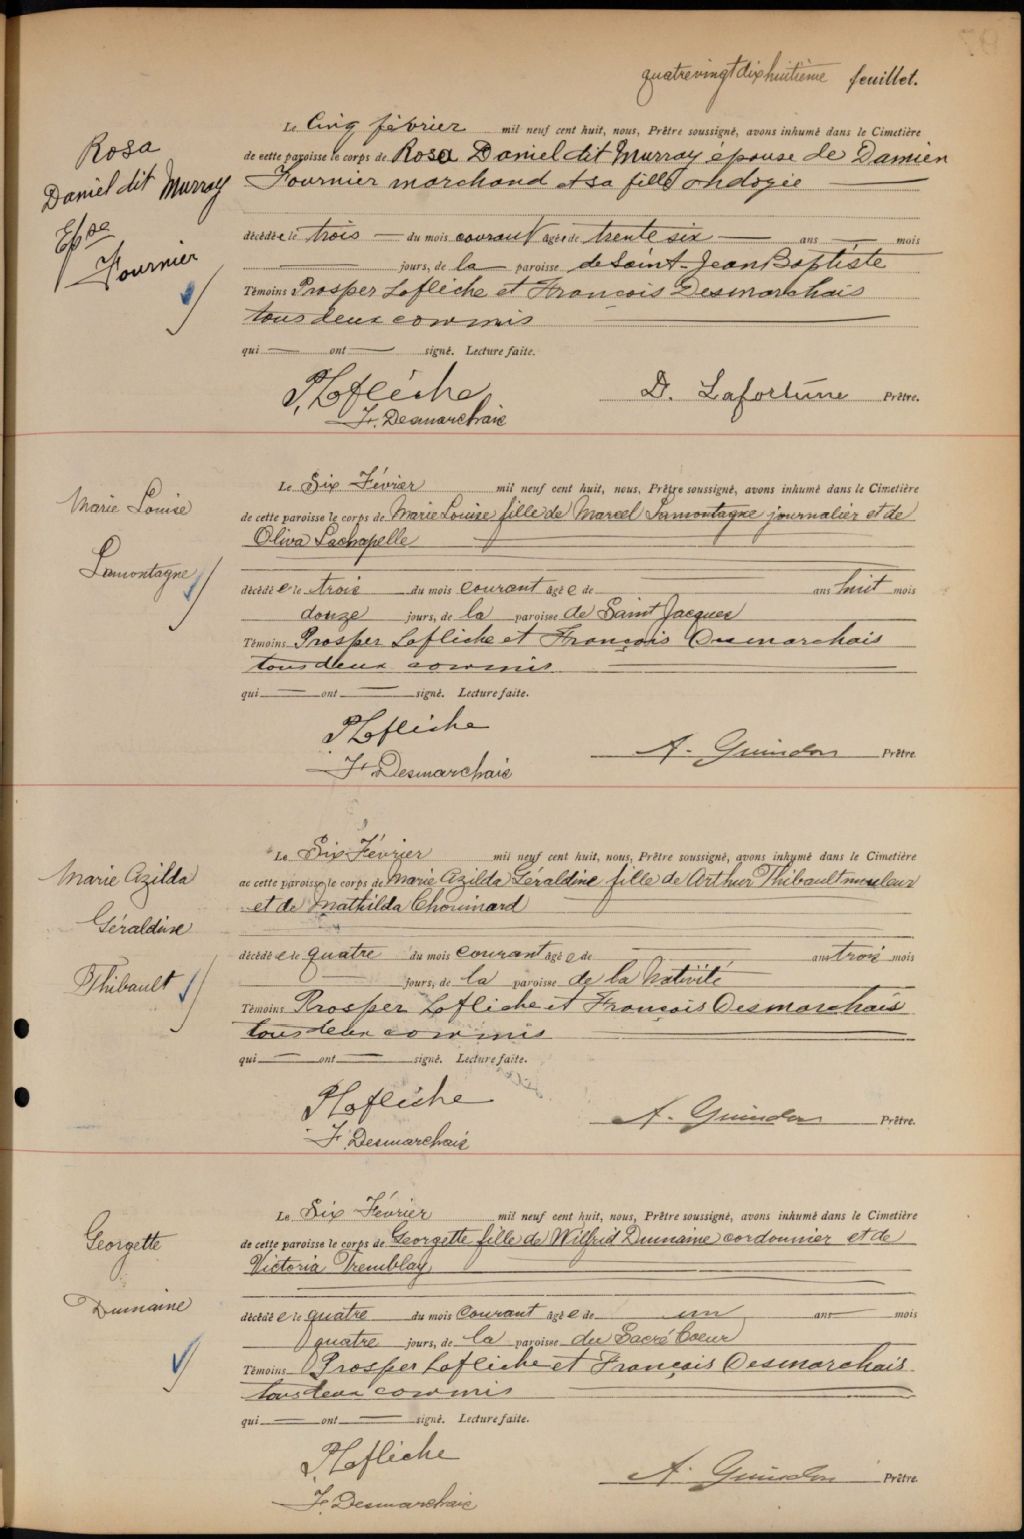 quatrevingtdixhuitième feuillet.
Rosa
Daniel dit Murray
Epse
Fournier
Le Cinq février mil neuf cent huit, nous, Prêtre soussigné, avons inhumé dans le Cimetière
de cette paroisse le corps de Rosa Daniel dit Murray épouse de Damien
Fournier marchand et sa fille ondoyée
décédée le trois du mois courant âgée de trente six ans mois
jours, de la paroisse de Saint-Jean Baptiste
Témoins Prosper Laflèche et François Desmarchais
tous deux commis
qui ont signé. Lecture faite.
P. Laflèche D. Lafortune Prêtre.
F. Desmarchais
Marie Louise
Lamontagne
Le Six Février mil neuf cent huit, nous, Prêtre soussigné, avons inhumé dans le Cimetière
de cette paroisse le corps de Marie Louise fille de Marcel Lamontagne journalier et de
Oliva Lachapelle
décédée le trois du mois courant âgée de ans huit mois
douze jours, de la paroisse de Saint Jacques
Témoins Prosper Laflèche et François Desmarchais
tous deux commis
qui ont signé. Lecture faite.
P Laflèche
A. Guindon Prêtre.
F. Desmarchais
Marie Azilda
Géraldine
Thibault
Le Six Février mil neuf cent huit, nous, Prêtre soussigné, avons inhumé dans le Cimetière
de cette paroisse le corps de Marie Azilda Géraldine fille de Arthur Thibault mouleur
et de Mathilda Chouinard
décédée le quatre du mois courant âgée de ans trois mois
jours, de la paroisse de la Nativité
Témoins Prosper Laflèche et François Desmarchais
tous deux commis
qui ont signé. Lecture faite.
P Laflèche
A. Guindon Prêtre.
F. Desmarchais
Georgette
Dumaine
Le Six Février mil neuf cent huit, nous, Prêtre soussigné, avons inhumé dans le Cimetière
de cette paroisse le corps de Georgette fille de Wilfrid Dumaine cordonnier et de
Victoria Tremblay
décédée le quatre du mois courant âgée de un ans mois
quatre jours, de la paroisse du Sacré Coeur
Témoins Prosper Laflèche et François Desmarchais
tous deux commis
qui ont signé. Lecture faite.
P. Laflèche
A. Guindon Prêtre.
F. Desmarchais